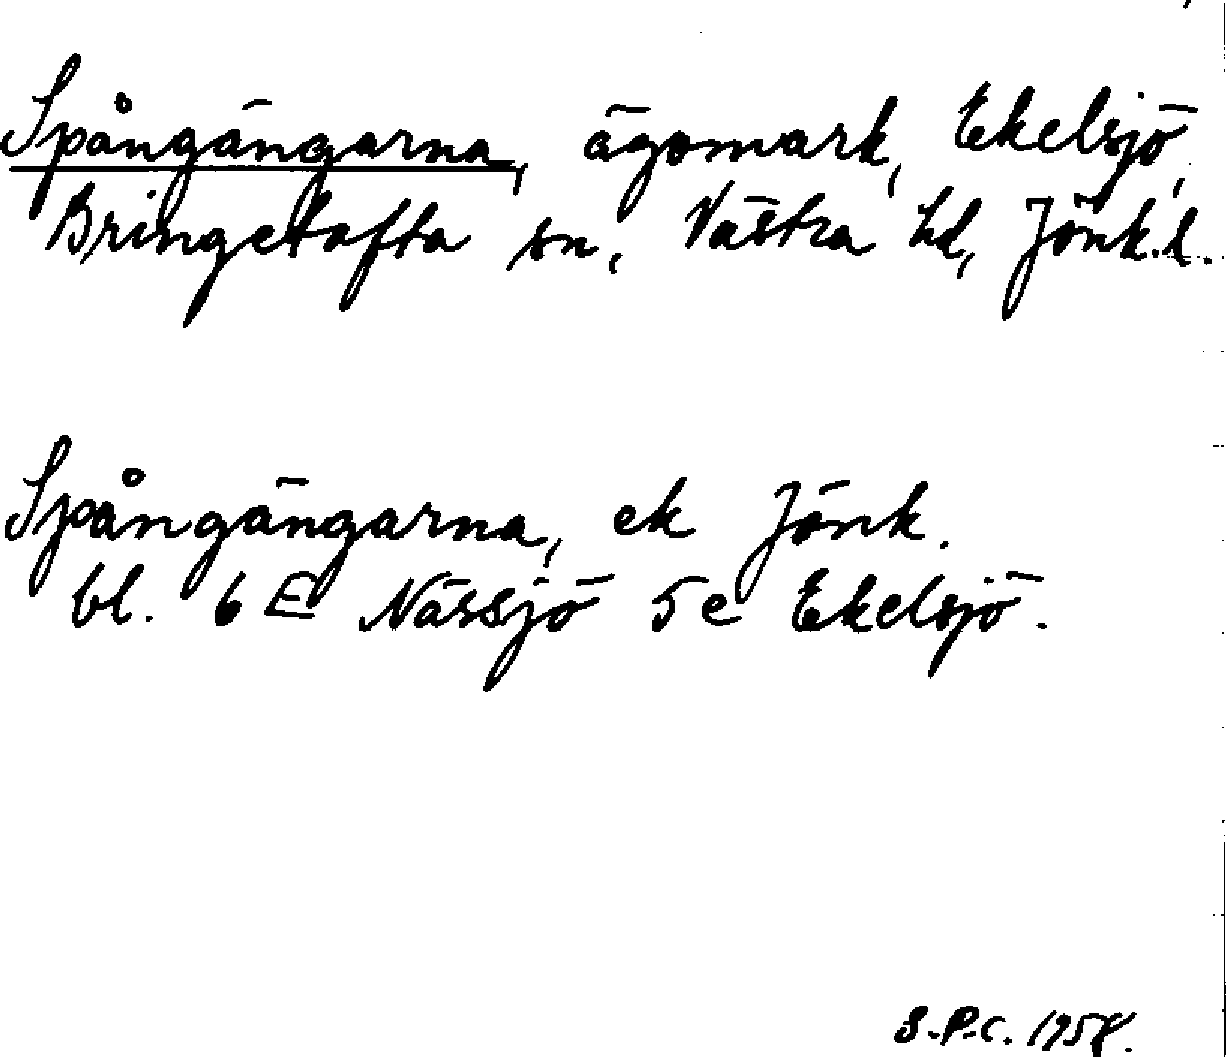 Spångängarna, ägomark, Ekelsjö,
Bringetofta sn, Västra hd, Jönk.l.
Spångängarna, ek Jönk.
bl. 6 E Nässjö 5e Ekelsjö.
S.P.C. 1958.